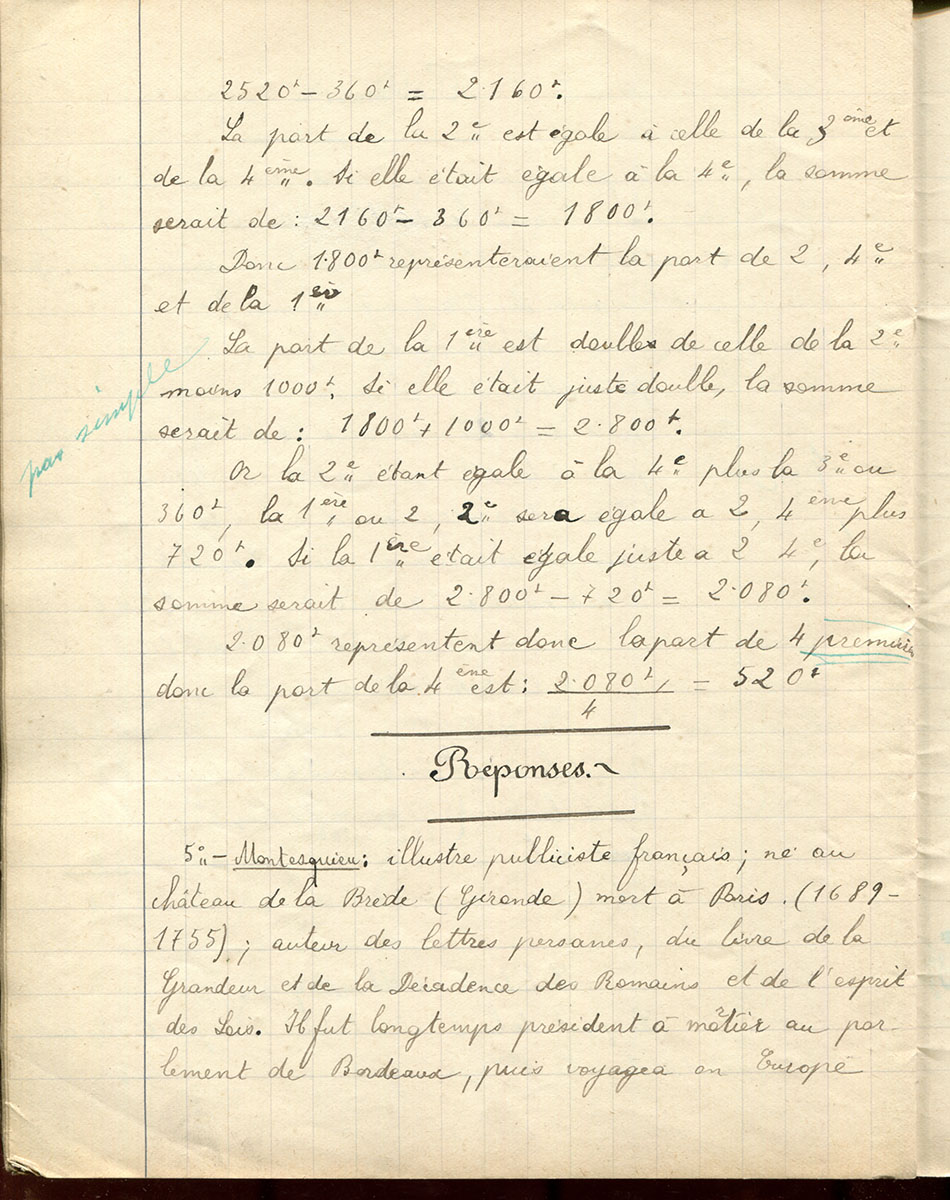 2520f – 360f = 2.160f.
La part de la 2e est égale à celle de la 3ème et
de la 4ème. Si elle était égale à la 4e, la somme
serait de : 2160f – 360f = 1800f.
Donc 1.800f représenteraient la part de 2, 4e
et de la 1ère
La part de la 1ère est double de celle de la 2e
moins 1000f. Si elle était juste double, la somme
pas simple
serait de : 1800f + 1000f = 2.800f.
Or la 2e étant égale à la 4e plus la 3e ou
360f, la 1ère ou 2, 2e sera égale a 2, 4ème plus
720f. Si la 1ère était égale juste a 2 4e, la
somme serait de 2.800f – 720f = 2.080f.
2.080f représentent donc la part de 4
donc la part de la 4ème est : 2.080f / 4 = 520f
Réponses.~
5° – Montesquieu : illustre publiciste français ; né au
château de la Brède (Gironde) mort à Paris. (1689-
1755) ; auteur des lettres persanes, du livre de la
Grandeur et de la Décadence des Romains et de l'esprit
des Lois. Il fut longtemps président à môtier au par-
lement de Bordeaux, puis voyagea en Europe